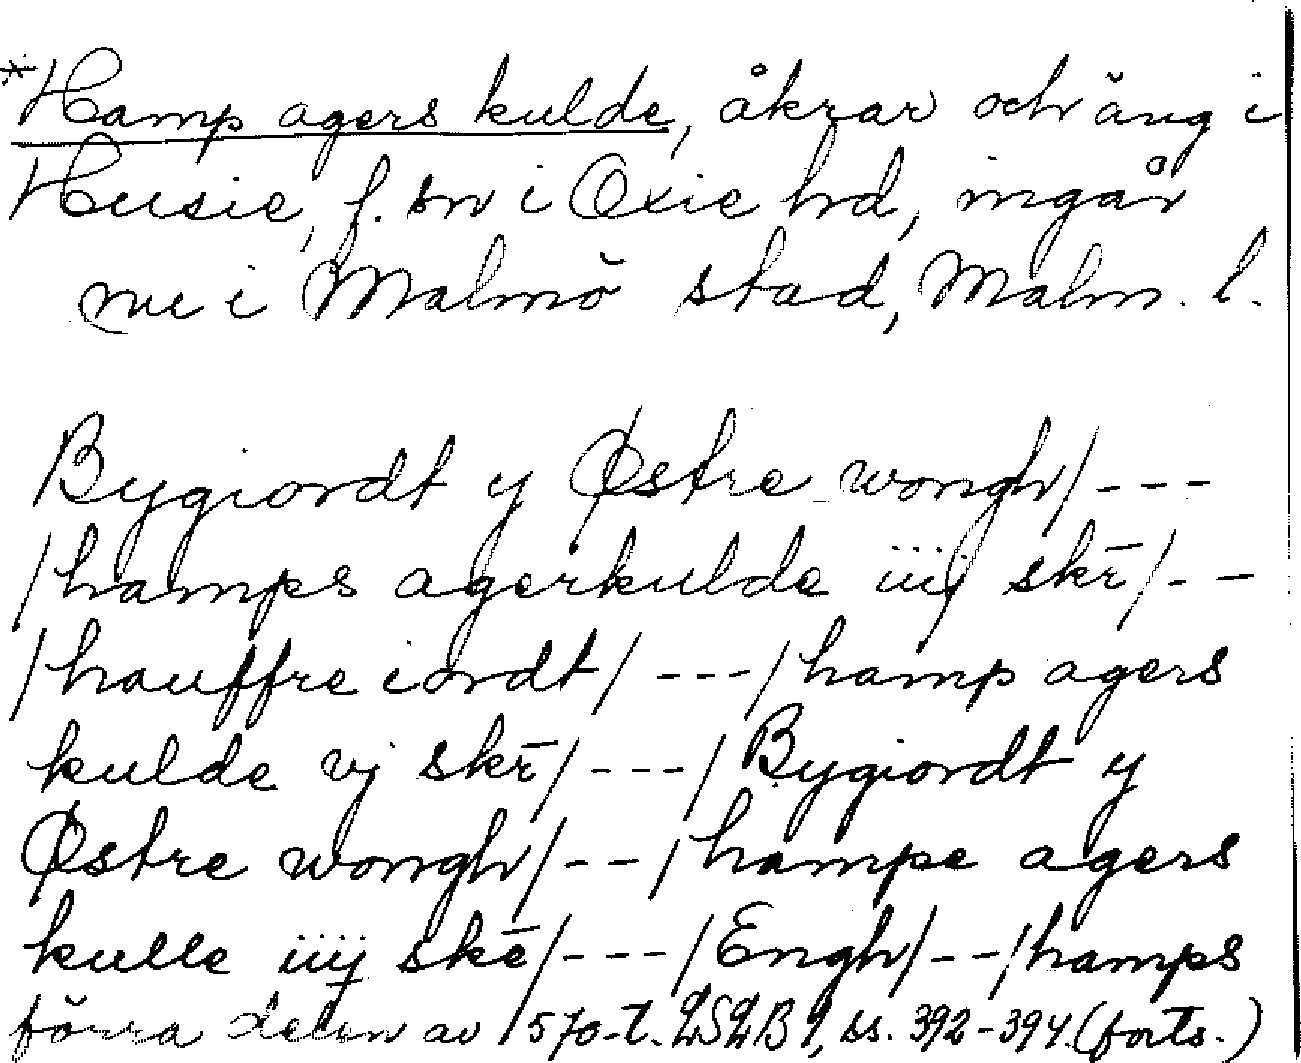 *Hamp agers kulde, åkrar och äng i
Husie, f. sn i Oxie hd, ingår
nu i Malmö stad, Malm. l.
Bygiordt y Østre wongh/---
/hamps agerkulde iiij skr̄/--
/hauffre iordt/---/hamp agers
kulde vj skr̄/---/Bygiordt y
Østre wongh/--/hampe agers
kulle iiij skē/---/Engh/--/hamps
förra delen av 1570-t. LSLB 9, ss. 392-394 (forts.)